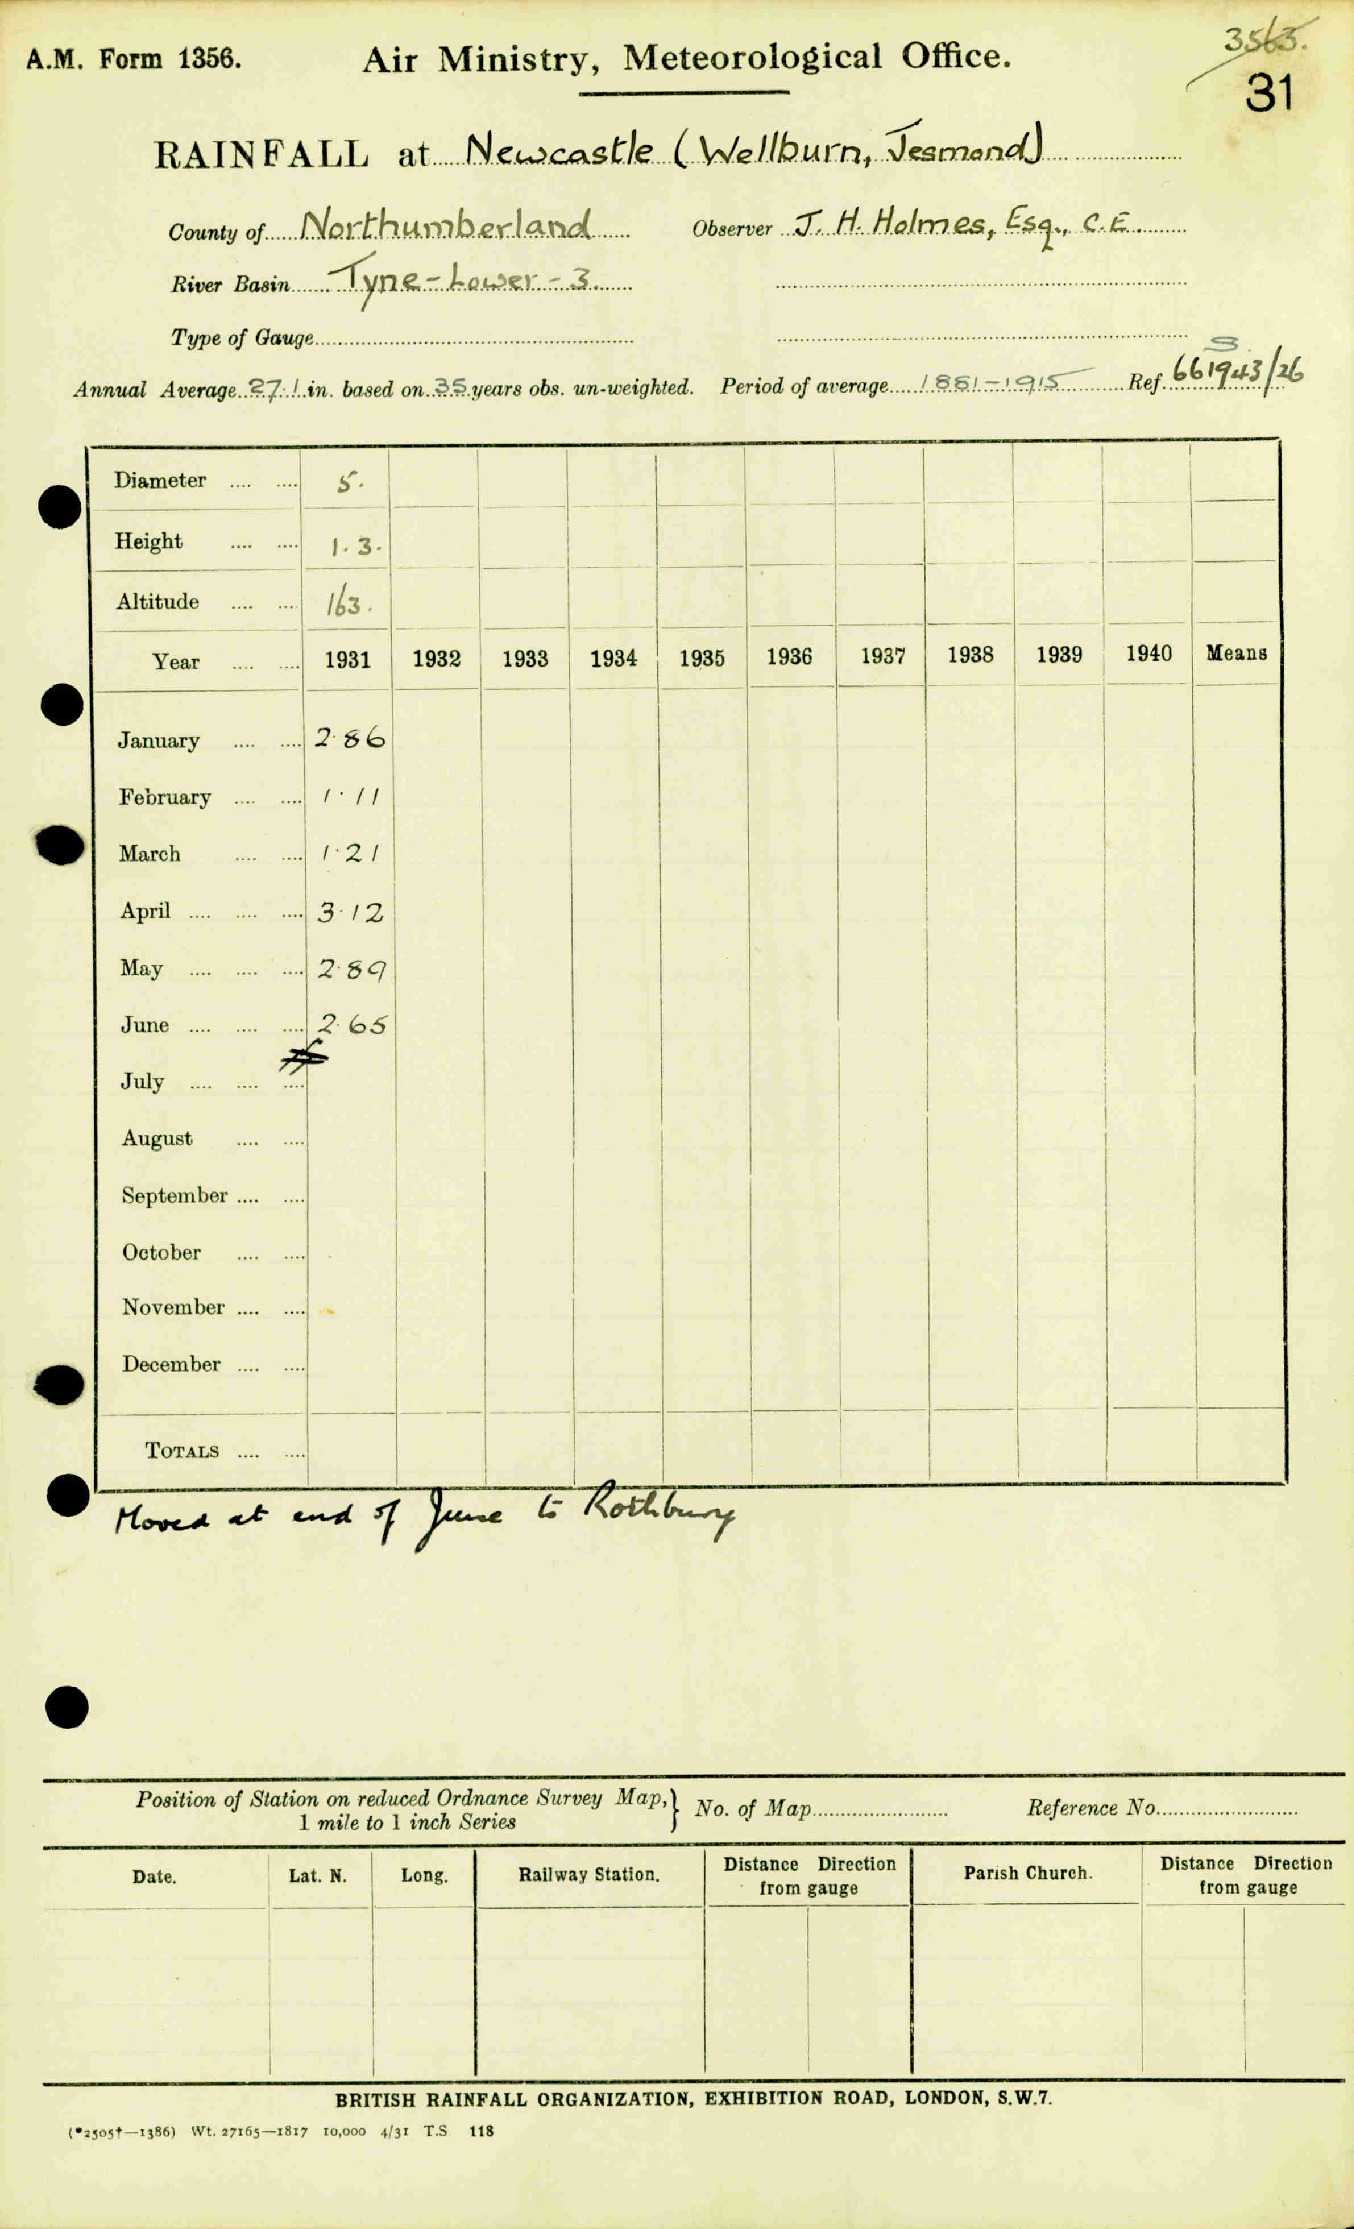 3563.
A.M. Form 1356. Air Ministry, Meteorological Office.
31
RAINFALL at Newcastle (Wellburn, Jesmond)
County of Northumberland Observer J. H. Holmes, Esq., C.E.
River Basin Tyne - Lower - 3.
Type of Gauge
S
Annual Average 27.1 in. based on 35 years obs. un-weighted. Period of average 1881-1915 Ref. 661943/26
Diameter .... .... 5.
Height .... .... 1.3.
Altitude .... .... 163.
Year .... .... 1931 1932 1933 1934 1935 1936 1937 1938 1939 1940 Means
January .... .... 2.86
February .... .... 1.11
March .... .... 1.21
April .... .... .... 3.12
May .... .... .... 2.89
June .... .... .... 2.65
July .... .... ....
August .... ....
September .... ....
October .... ....
November .... ....
December .... ....
TOTALS .... ....
Moved at end of June to Rothbury
Position of Station on reduced Ordnance Survey Map, } No. of Map Reference No.
1 mile to 1 inch Series
Date. Lat. N. Long. Railway Station. Distance Direction Parish Church. Distance Direction
from gauge from gauge
BRITISH RAINFALL ORGANIZATION, EXHIBITION ROAD, LONDON, S.W.7.
(*2505†—1386) Wt. 27165—1817 10,000 4/31 T.S. 118